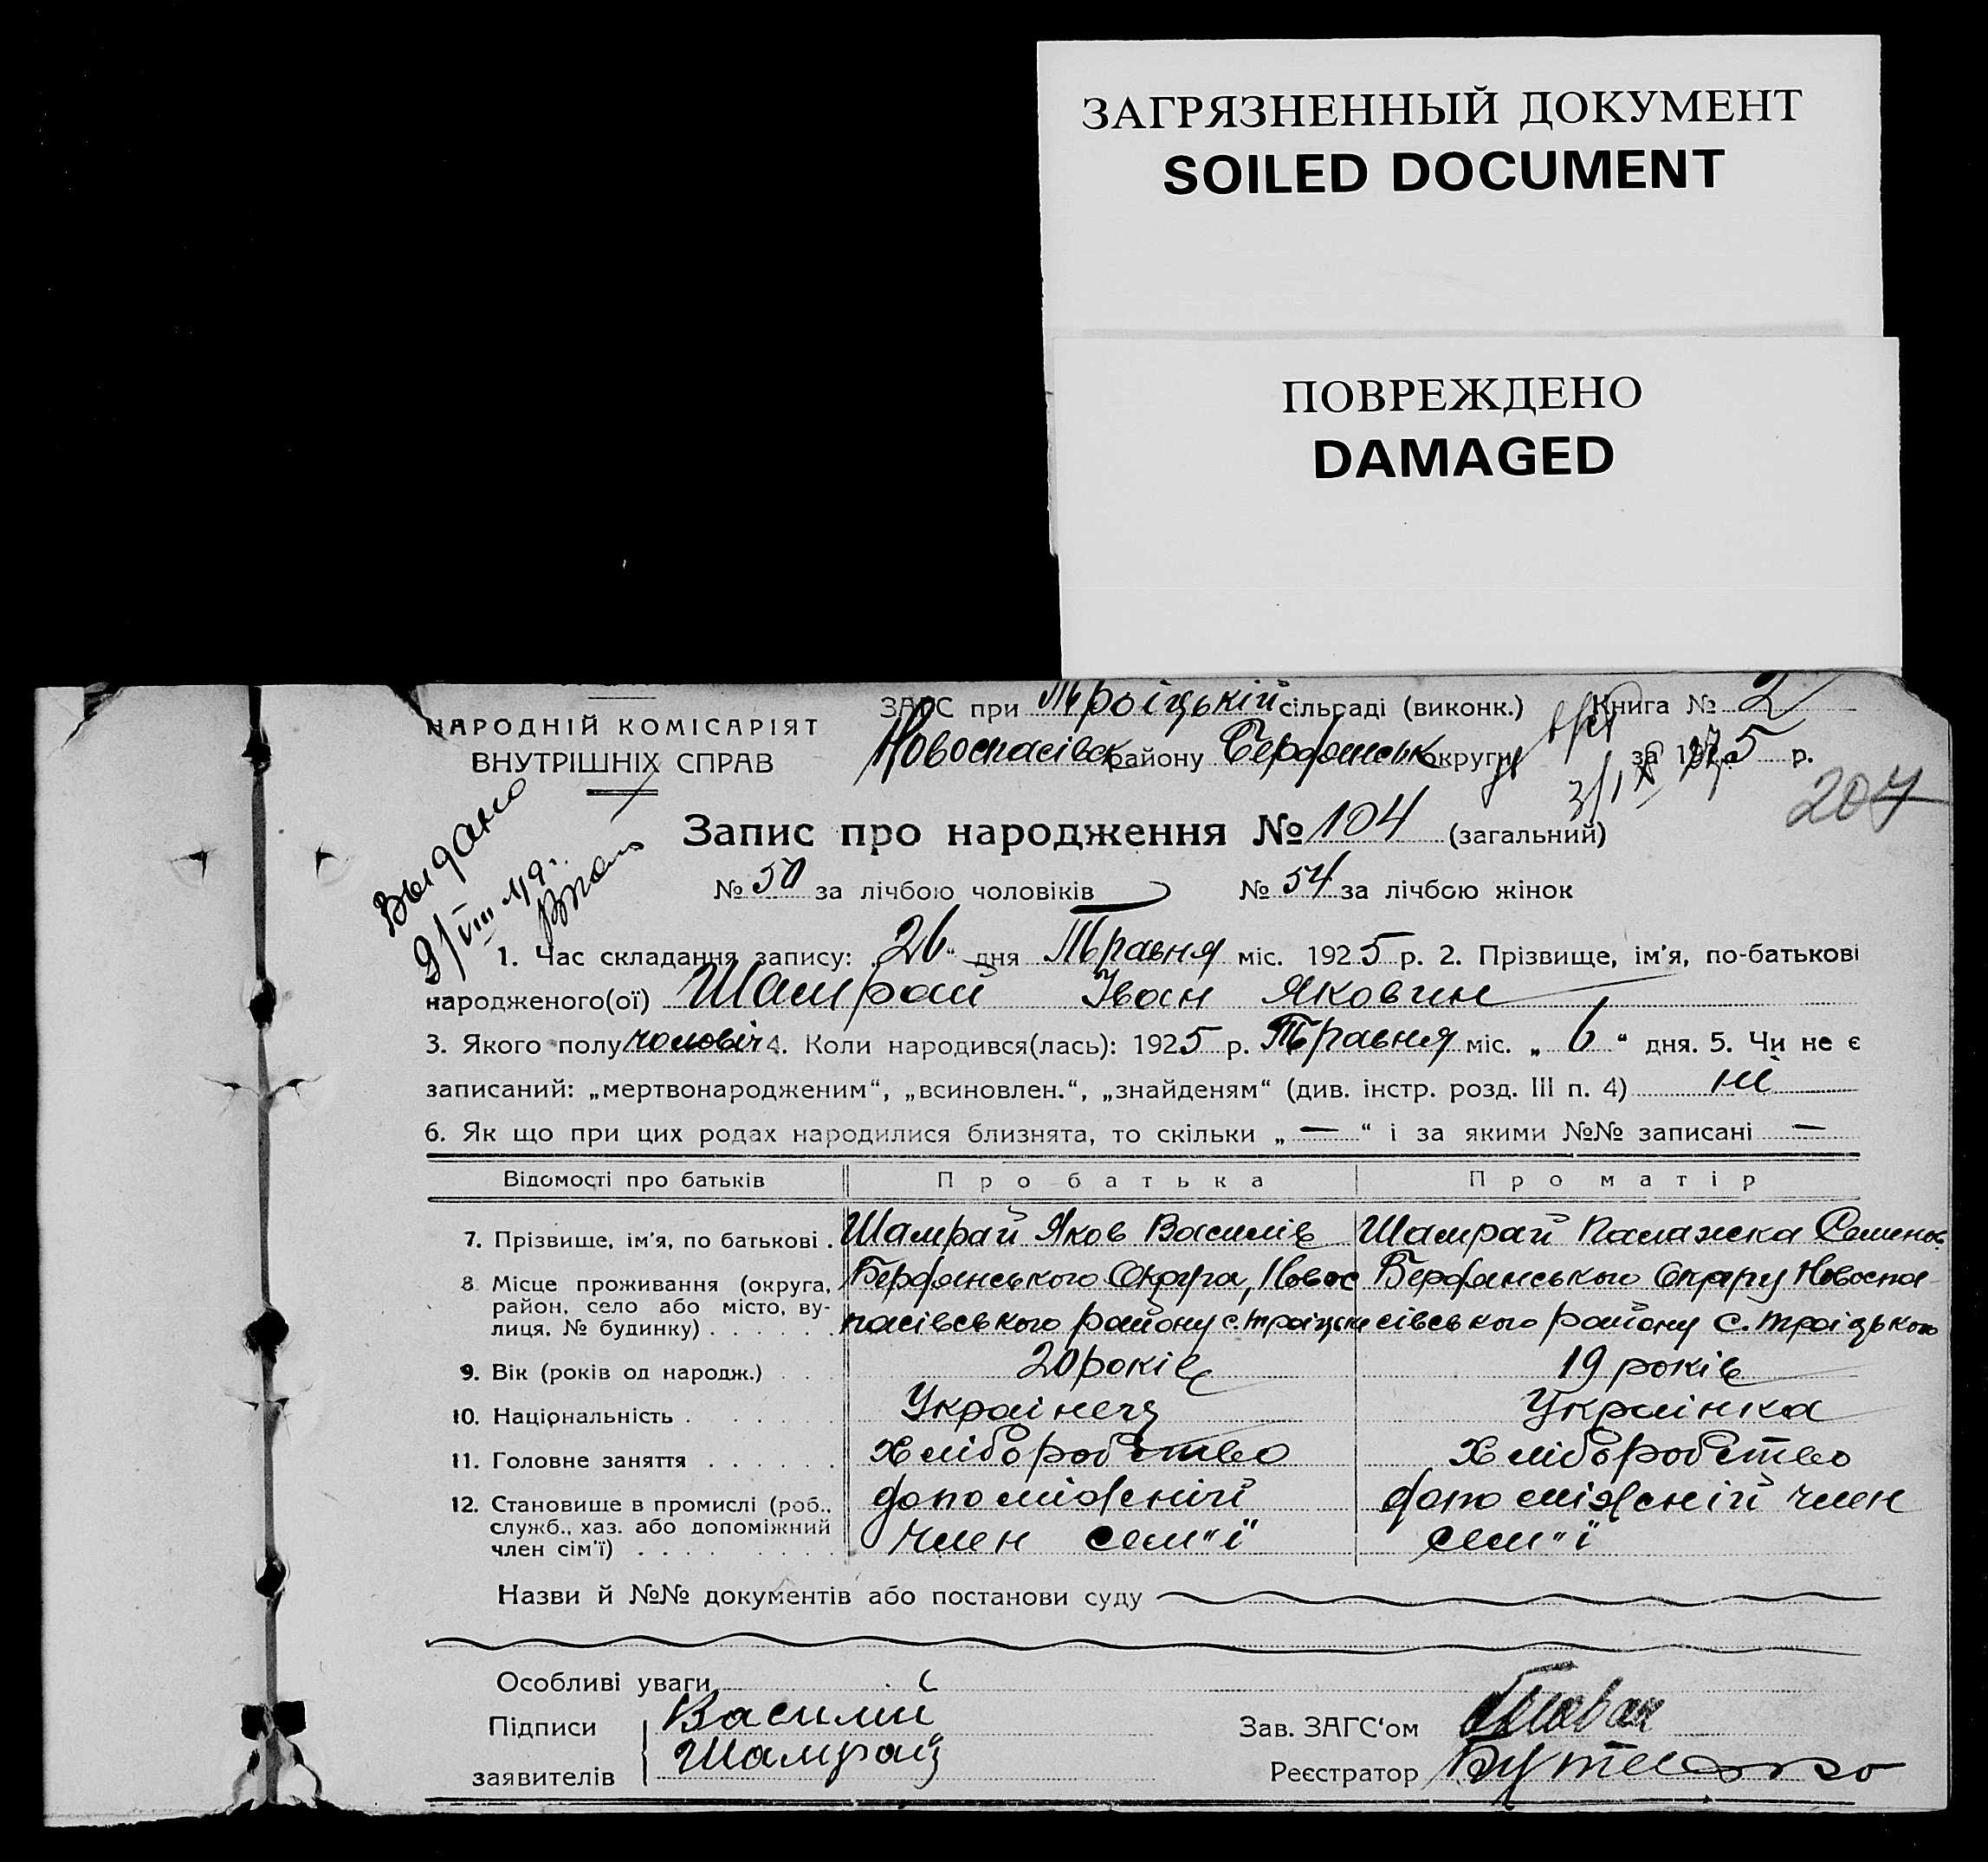 ЗАГРЯЗНЕННЫЙ ДОКУМЕНТ
SOILED DOCUMENT
ПОВРЕЖДЕНО
DAMAGED
НАРОДНІЙ КОМІСАРІЯТ
ВНУТРІШНІХ СПРАВ
ЗАГС при Троіцькій сільраді (виконк.) Книга № 2
Новоспасівськ району Бердянськ округи за 1925 р.
204
Выдано
9/VIII 49г.
Запис про народження № 104 (загальний)
№ 50 за лічбою чоловіків № 54 за лічбою жінок
1. Час складання запису: „26“ дня Травня міс. 1925 р. 2. Прізвище, ім'я, по-батькові
народженого(ої) Шамрай Іван Яковин
3. Якого полу чоловіч 4. Коли народився(лась): 1925 р. Травня міс. „6“ дня. 5. Чи не є
записаний: „мертвонародженим“, „всиновлен.“, „знайденям“ (див. інстр. розд. III п. 4) ні
6. Як що при цих родах народилися близнята, то скільки „—“ і за якими №№ записані —
Відомості про батьків Про батька Про матір
7. Прізвище, ім'я, по батькові . Шамрай Яков Василів Шамрай Палажка Семенов.
8 Місце проживання (округа, Бердянського Округа, Новос Бердянського Округу Новоспа-
район, село або місто, ву- пасівського району с. Троіцьк сівського району с. Троіцького
лиця. № будинку) . . . . . .
9. Вік (років од народж.) . . . 20 років 19 років
10. Національність . . . . . . Украінець Украінка
11. Головне заняття . . . . . . Хліборобство Хліборобство
12. Становище в промислі (роб., допоміжній допоміжній член
служб., хаз. або допоміжний член сем"ї сем"ї
член сім'ї) . . . . . . . .
Назви й №№ документів або постанови суду
Особливі уваги
Підписи Василий Зав. ЗАГС'ом
заявителів Шамрай Реєстратор Бутенко